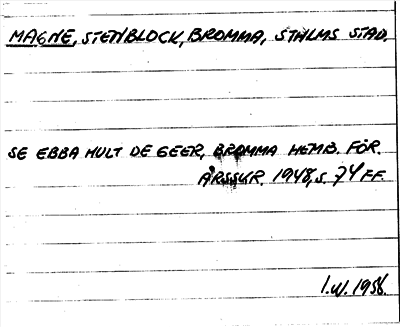 MAGNE, STENBLOCK, BROMMA, STHLMS STAD.
SE EBBA HULT DE GEER, BROMMA HEMB. FÖR.
ÅRSSKR. 1948, S. 74 FF.
I.W. 1956.